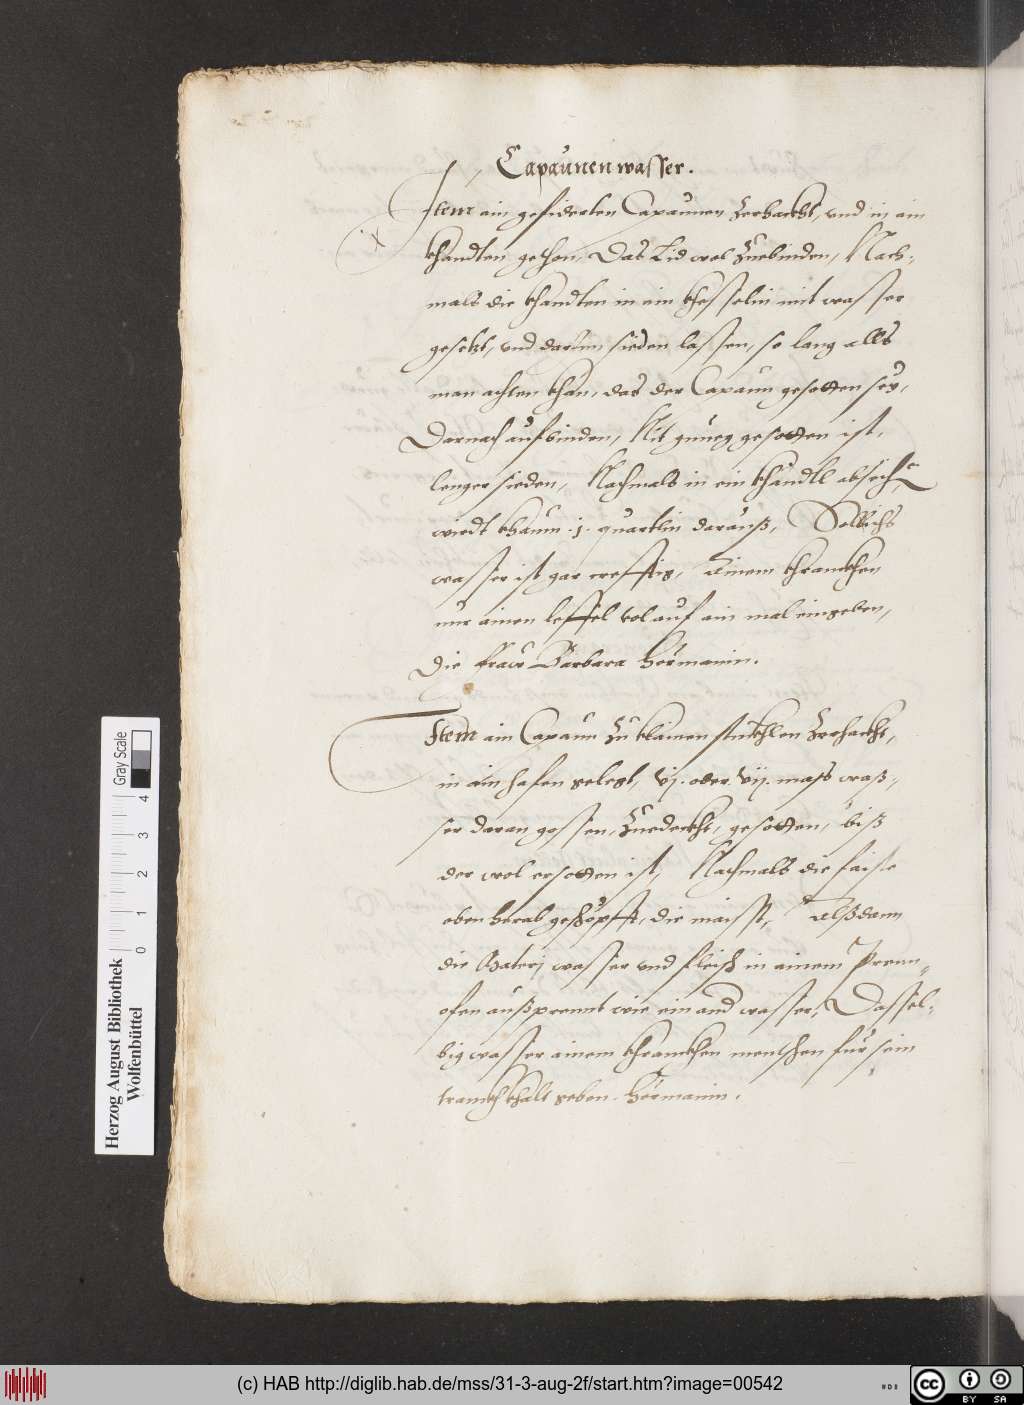 Capaunen wasser.
Item ain gefiderten Capaunen zerhackht, vnd in ain
khandten gethon, Das Lid wol zuebinden, Nach-
mals die khandten in ain khesselin mit wasser
gesetzt, vnd darinn sieden lassen, so lang alls
man achten khan, das der Capaun gesotten sey,
Darnach aufbinden, Nit gnueg gesotten ist,
lenger sieden, Nachmals in ein khandtl abseichen
wirdt khaum .j. quartlin darauß, Sollichs
wasser ist gar creftig, Ainem khranckhen
nur ainen leffel vol auf ain mal eingeben,
Die fraw Barbara Hörmanin.
Item ain Capaun zu klainen stuckhlen zerhackht,
in ain hafen gelegt, vj. oder vij. mass waß-
ser daran gossen, zuedeckht, gesotten, biß
der wol ersotten ist, Nachmals die faiste
oben herab geschöpfft, die maist, Alßdann
die Materj wasser und fleisch in ainem Prenn-
ofen außprennt wie ein and wasser, Dassel-
big wasser ainem khranckhen menschen für sein
tranckh khalt geben. Hörmanin.
Herzog August Bibliothek
Wolfenbüttel
0 1 2 3 4
Gray Scale
(c) HAB http://diglib.hab.de/mss/31-3-aug-2f/start.htm?image=00542
cc BY SA